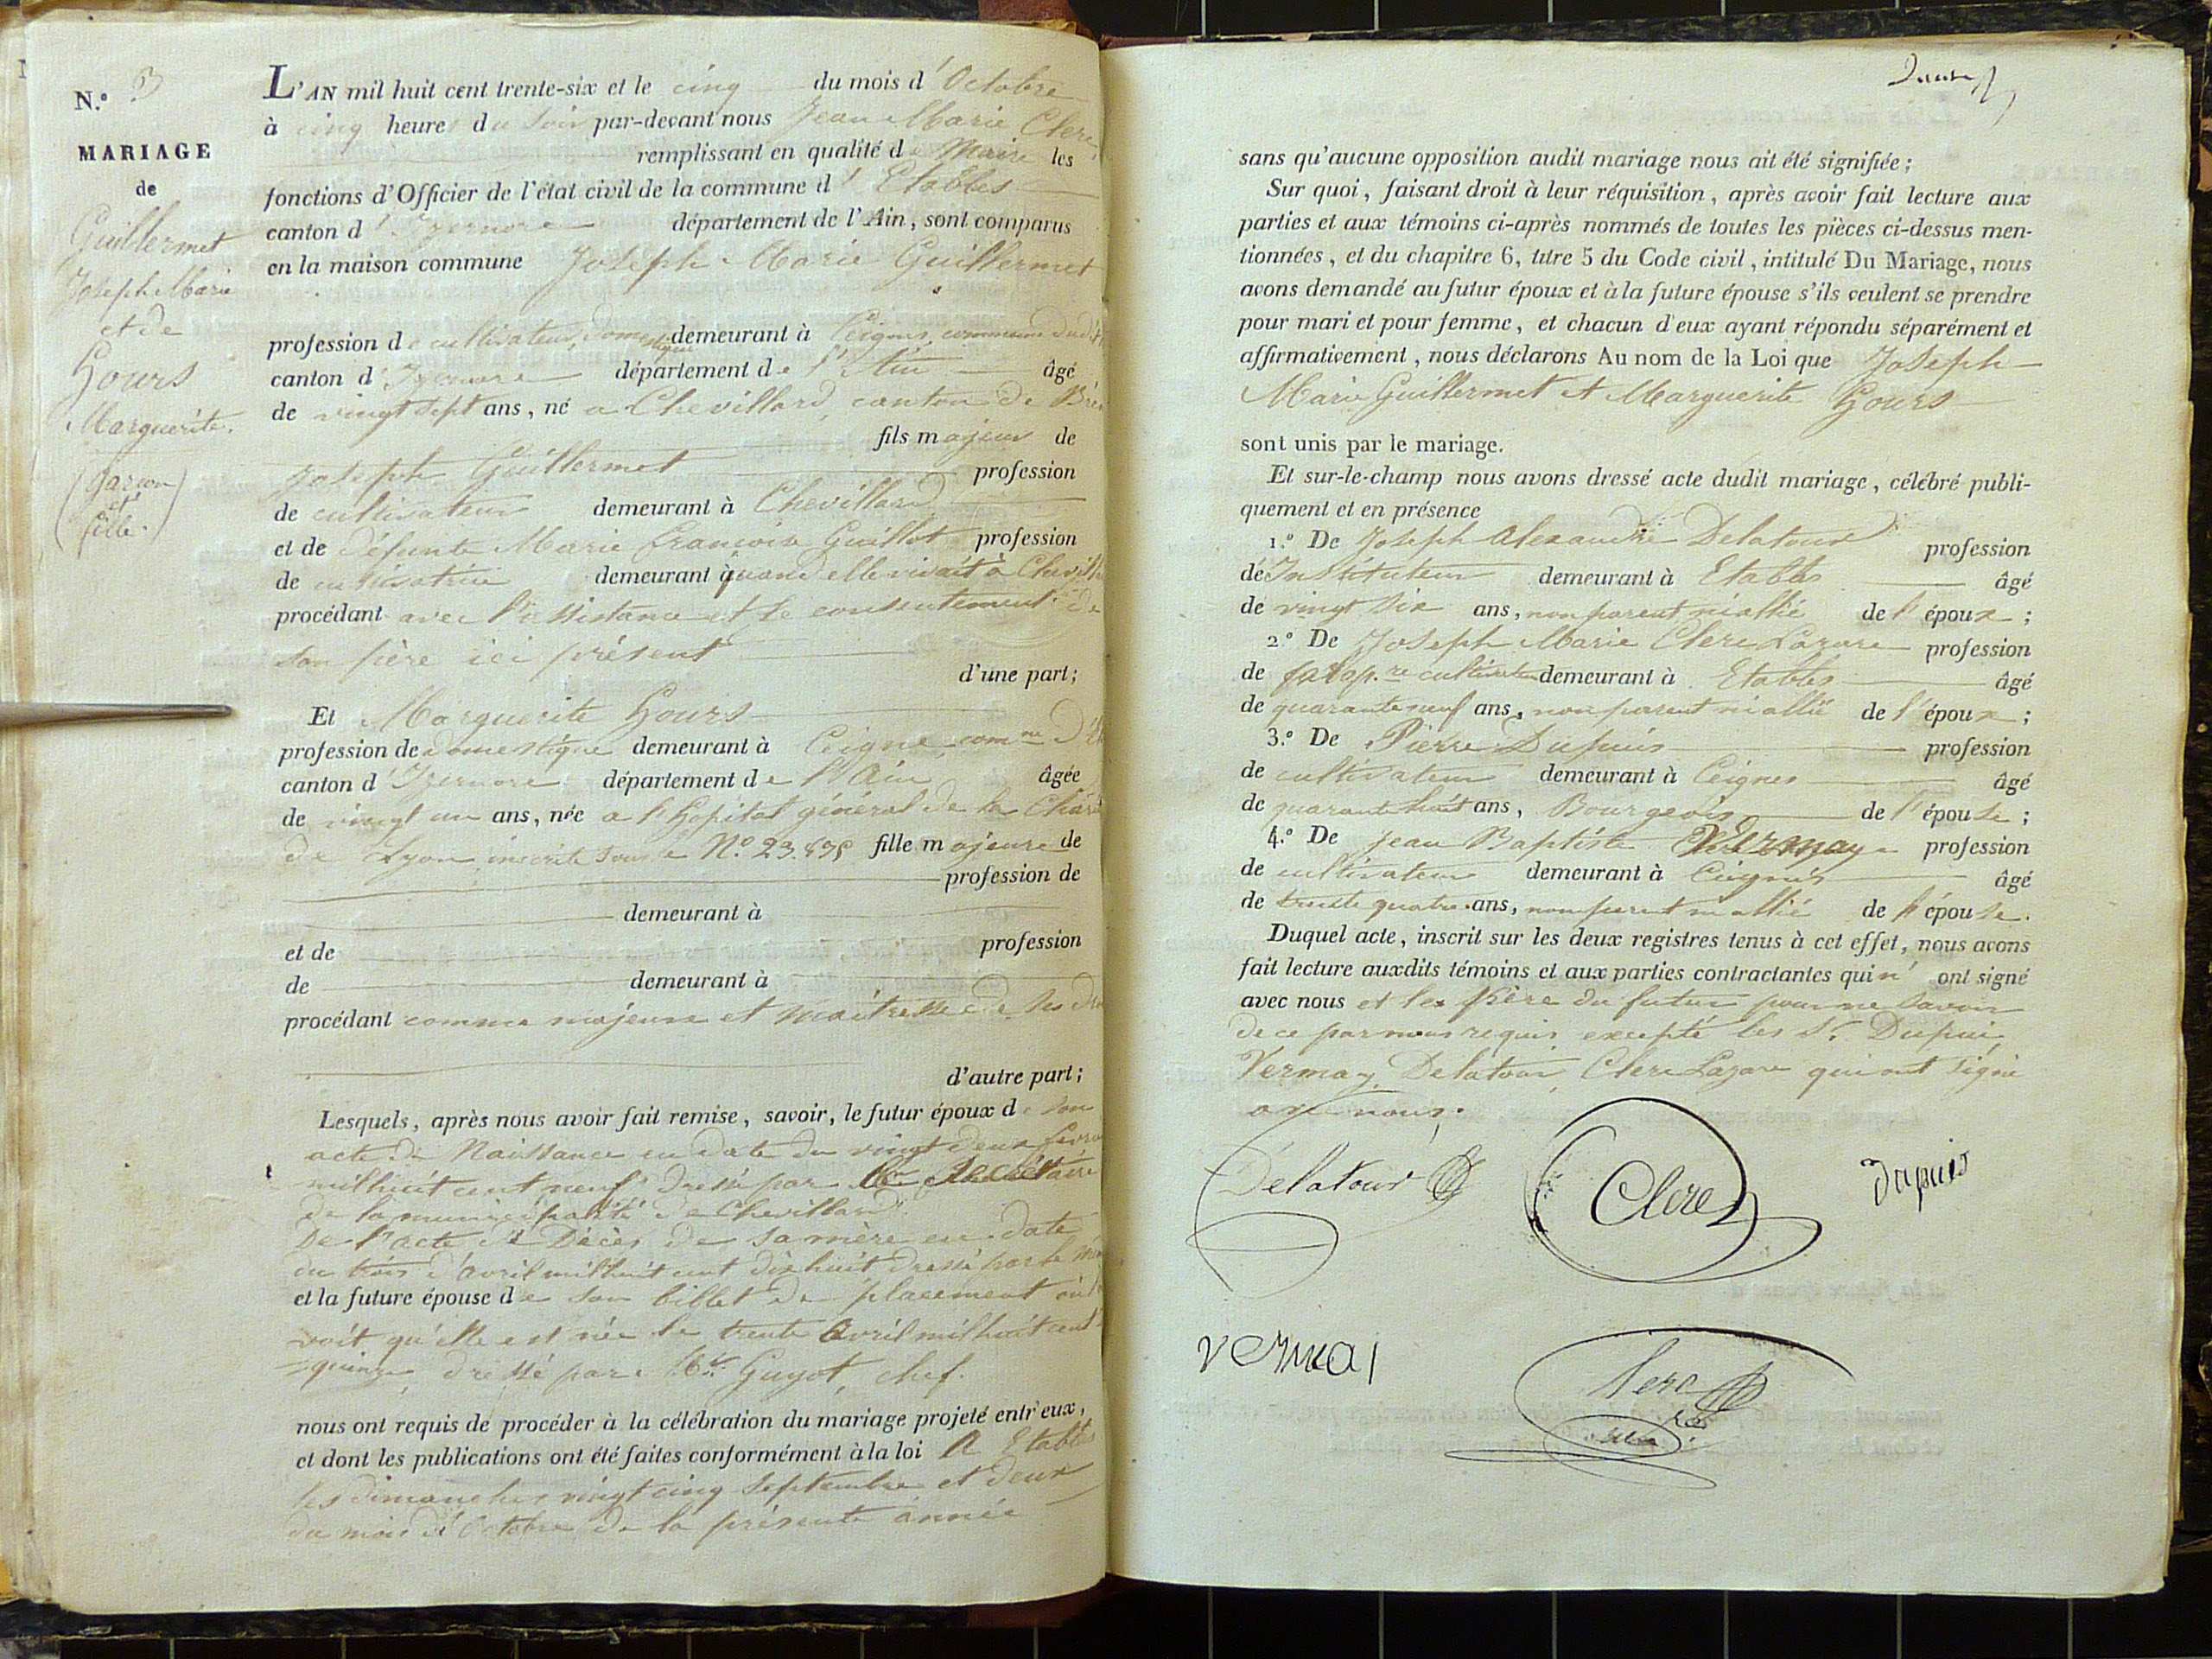 N.° 3
MARIAGE
de
Guillermet
Joseph Marie
et de
Gours
Marguerite.
(garçon
et
fille.)
L'AN mil huit cent trente-six et le cinq du mois d'Octobre
à cinq heures du soir par-devant nous Jean Marie Clerc,
remplissant en qualité de Maire les
fonctions d'Officier de l'état civil de la commune d'Etables
canton d'Izernore département de l'Ain, sont comparus
en la maison commune Joseph Marie Guillermet
profession de cultivateur, domestique demeurant à Ceignes, commune dudit
canton d'Izernore département de l'Ain âgé
de vingt sept ans, né a Chevillard, canton de
fils majeur de
Joseph Guillermet profession
de cultivateur demeurant à Chevillard
et de défunte Marie françoise Guillot profession
de cultivatrice demeurant quand elle vivait à
procédant avec l'assistance et le consentement de
son père ici présent
d'une part;
Et Marguerite Gours
profession de domestique demeurant à Ceigne, com.ne
canton d'Izernore département de l'Ain âgée
de vingt un ans, née a l'hopital général de la
de Lyon inscrite sous le N.° fille majeure de
profession de
demeurant à
et de profession
de demeurant à
procédant comme majeure et maitresse de ses
d'autre part;
Lesquels, après nous avoir fait remise, savoir, le futur époux de son
acte de Naissance en date du vingt deux
mil huit cent neuf dressé par le Secrétaire
de la municipalité de Chevillard.
De l'acte de Décès de sa mère en date
du trois d'avril mil huit cent dix huit dressé par le
et la future épouse de son billet de placement où
-voit qu'elle est née le trente avril mil huit cent
-quinze, dressé par Mr. Guyot, chef.
nous ont requis de procéder à la célébration du mariage projeté entr'eux,
et dont les publications ont été faites conformément à la loi A Etables
les dimanches vingt cinq Septembre et deux
du mois d'Octobre de la présente année
sans qu'aucune opposition audit mariage nous ait été signifiée;
Sur quoi, faisant droit à leur réquisition, après avoir fait lecture aux
parties et aux témoins ci-après nommés de toutes les pièces ci-dessus men-
tionnées, et du chapitre 6, titre 5 du Code civil, intitulé Du Mariage, nous
avons demandé au futur époux et à la future épouse s'ils veulent se prendre
pour mari et pour femme, et chacun d'eux ayant répondu séparément et
affirmativement, nous déclarons Au nom de la Loi que Joseph
Marie Guillermet et Marguerite Gours
sont unis par le mariage.
Et sur-le-champ nous avons dressé acte dudit mariage, célébré publi-
quement et en présence
1.° De Joseph Alexandre Delatour profession
de Instituteur demeurant à Etables âgé
de vingt six ans, non parent ni allié de l'époux;
2.° De Joseph Marie Clerc Lazare profession
de cultivateur demeurant à Etables âgé
de quarante neuf ans, non parent ni allié de l'époux;
3.° De Pierre Dupuis profession
de cultivateur demeurant à Ceignes âgé
de quarante huit ans, Bourgeois de l'épouse;
4.° De Jean Baptiste Vermay profession
de cultivateur demeurant à Ceignes âgé
de trente quatre ans, non parent ni allié de l'épouse.
Duquel acte, inscrit sur les deux registres tenus à cet effet, nous avons
fait lecture auxdits témoins et aux parties contractantes qui n'ont signé
avec nous et le père du futur pour ne savoir
de ce par nous requis excepté les Sr. Dupuis,
Vermay, Delatour, Clerc Lazare qui ont signé
avec nous.
Delatour
Clerc
Dupuis
vermai
Clerc